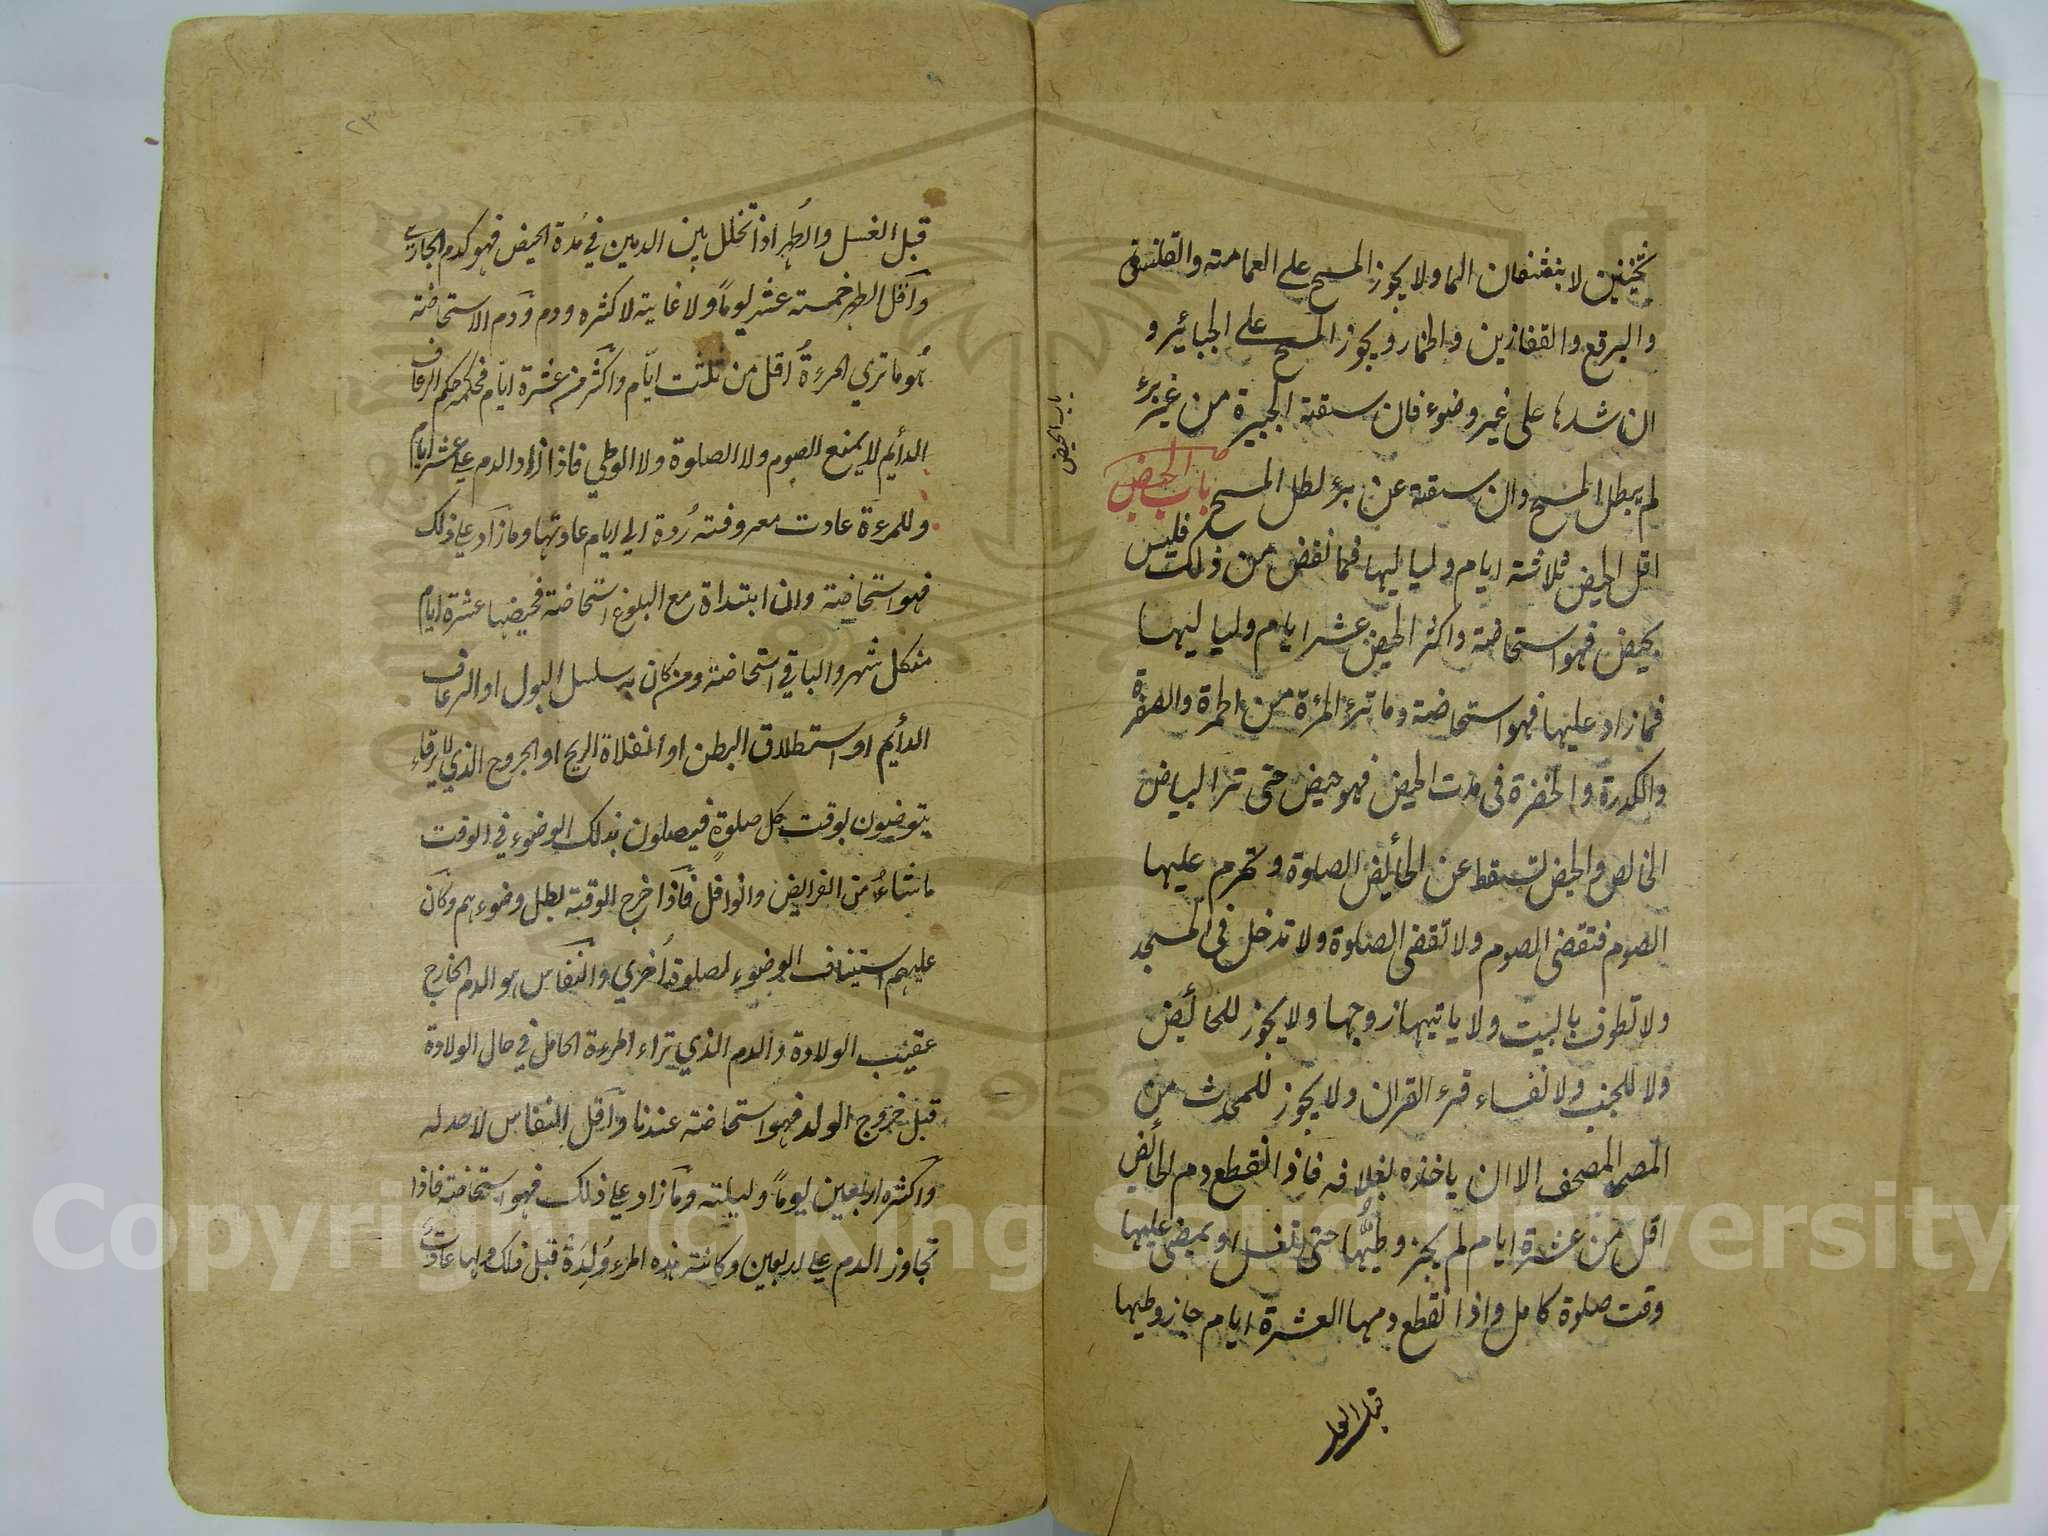 ثخينين لا ينشفان الما ولا يجوز المسح على العمامته والقلنسوة
والبرقع والقفازين والخمار ويجوز المسح على الجبائير و
ان شدها على غير وضوء فان سقتة الجبيرة من غير برء
لم يبطل المسح وان سقته عن برء بطل المسح باب الحيض
اقل الحيض ثلاثته ايام ولياليها فما نقض من ذلك فليس
بحيض فهو استحاضته واكثر الحيض عشر ايام ولياليها
فما زاد عليها فهو استحاضته وما ترء المرءة من الحمرة والصفرة
والكدرة والخضرة فى مدت الحيض فهو حيض حتى ترا لبياض
الخالص والحيض تسقط عن الحأيض الصلوة وتحرم عليها
الصوم فتقضى الصوم ولا تقضى الصلوة ولا تدخل فى المسجد
ولا تطوف بالبيت ولا ياتيها زوجها ولا يجوز للحائض
ولا للجنب ولا نفساء قرء القران ولا يجوز للمحدث من
المصحف الا ان ياخذه بغلافه فاذا انقطع دم الحائض
اقل من عشرة ايام لم يجز وطيها حتى تغسل او يمضى عليها
وقت صلوة كامل واذا انقطع دمها العشرة ايام جاز وطيها
باب الحيض
٢٣
قبل الغسل والطهر اذا تخلل بين الدمين في مدة الحيض فهو كدم الجاري
واقل الطهر خمسته عشر يوماً ولا غايته لاكثره ودم ودم الاستحاضته
هو ما تري المرءة اقل من ثلثت ايّام واكثر من عشرة ايّام فحكمه حكم الرعاف
الدأيم لا يمنع الصوم ولا الصلوة ولا الوطي فاذا زاد الدم علي عشر ايام
وللمرءة عادت معروفته رُدة الي ايام عادتها وما زاد علي ذلك
فهو استحاضته وان ابتداة مع البلوغ استحاضته فحيضها عشرة ايام
من كل شهر والباقي استحاضته ومن كان به سلسل البول او الرعاف
الدأيم او استطلاق البطن او انفلاة الريح او الجروح الذي لا يرقاء
يتوضيون لوقت كل صلوةٍ فيصلون بذلك الوضوء في الوقت
ما شاءُ من الفرايض وانوافل فاذا خرج الوقته بطل وضوءهم وكان
عليهم استيناف الوضوء لصلوة اُخري والنفاس هو الدم الخارج
عقيب الولادة والدم الذي تراء المرءة الحامل في حال الولادة
قبل خروج الولد فهو استحاضته عندنا واقل النفاس لا حد له
واكثره اربعين يوماً وليلته وما زاد علي ذلك فهو استحاضته فاذا
تجاوز الدم علي اربعين وكانت هذه المرء وُلِدَةْ قبل ذلك ولها عادت
Copyright © King Saud University
1957